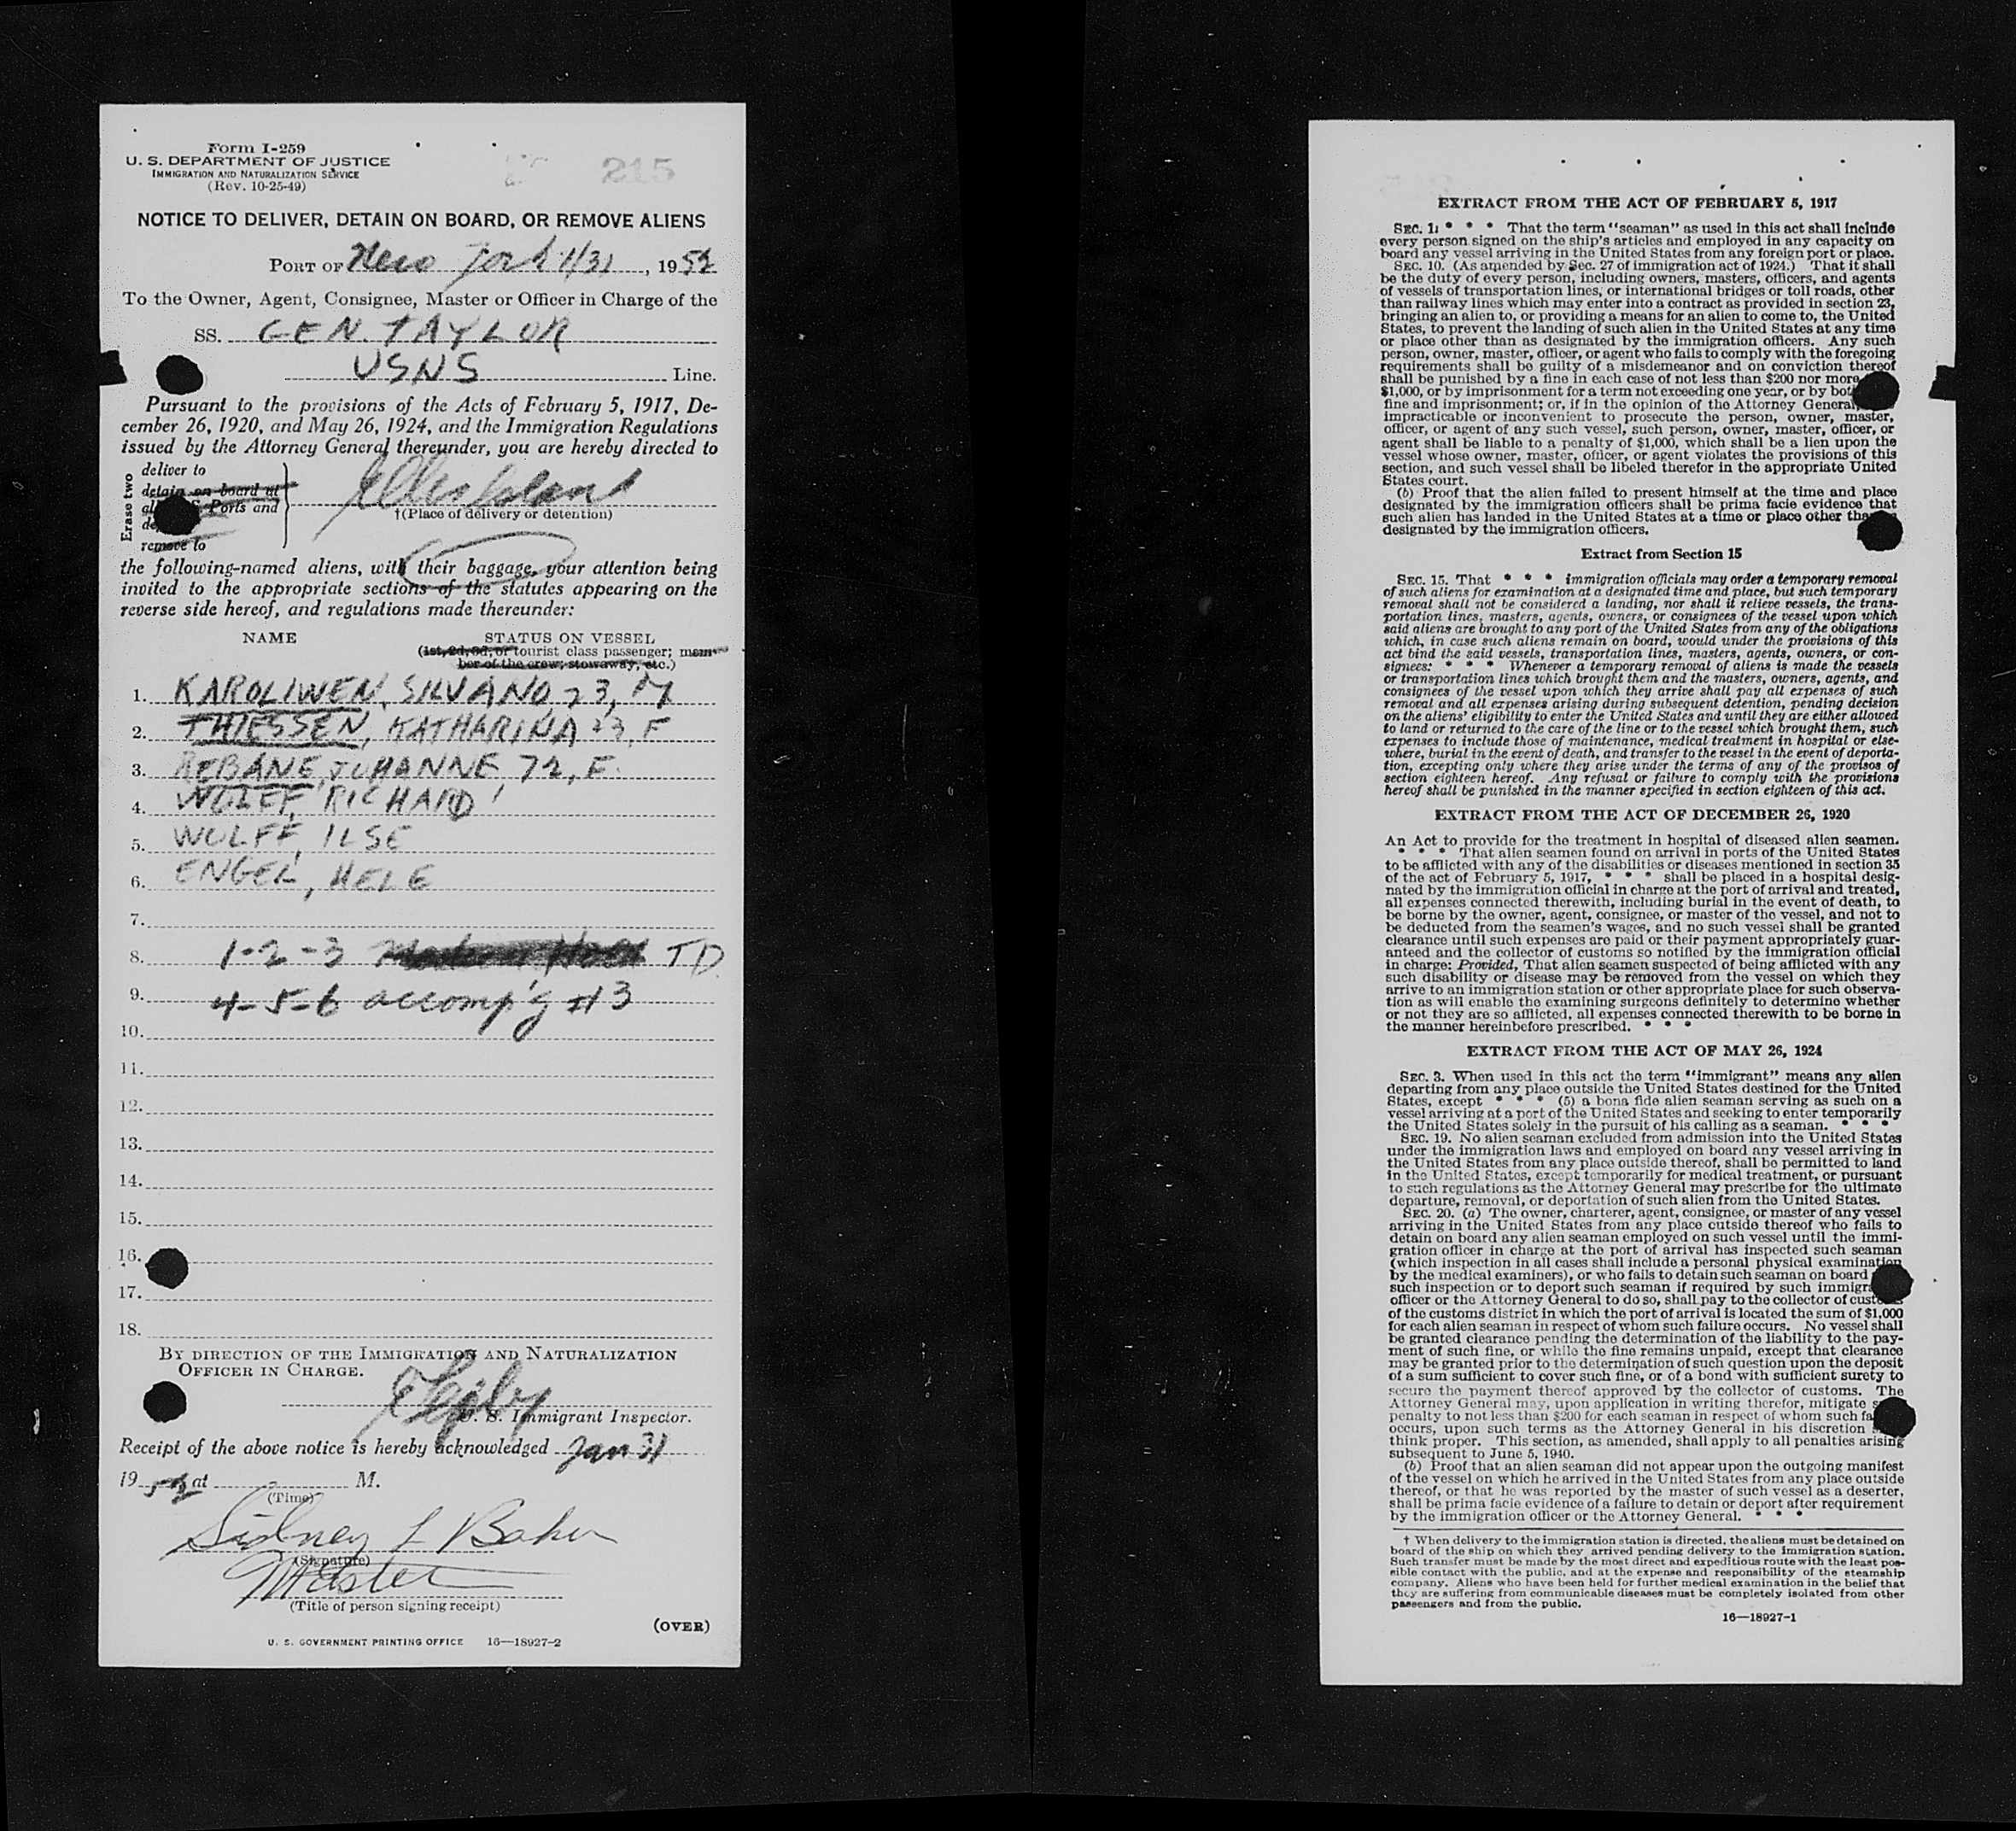 Form I-259
U. S. DEPARTMENT OF JUSTICE
IMMIGRATION AND NATURALIZATION SERVICE
(Rev. 10-25-49)
215
NOTICE TO DELIVER, DETAIN ON BOARD, OR REMOVE ALIENS
PORT OF New York 1/31, 1952
To the Owner, Agent, Consignee, Master or Officer in Charge of the
SS. GEN. TAYLOR
USNS Line.
Pursuant to the provisions of the Acts of February 5, 1917, De-
cember 26, 1920, and May 26, 1924, and the Immigration Regulations
issued by the Attorney General thereunder, you are hereby directed to
Erase two
deliver to
detain on board at
Ports and
remove to
Ellis Island
†(Place of delivery or detention)
the following-named aliens, with their baggage, your attention being
invited to the appropriate sections of the statutes appearing on the
reverse side hereof, and regulations made thereunder:
NAME STATUS ON VESSEL
(1st, 2d, 3d, or tourist class passenger; mem-
ber of the crew; stowaway, etc.)
1. KAROLIWEN, SILVANO, 23, M
2. THIESSEN, KATHARINA 23, F
3. REBANE, JOHANNE 72, F.
4. WOLFF, RICHARD
5. WOLFF, ILSE
6. ENGEL, HELE
7.
8. 1-2-3 TD
9. 4-5-6 accomp'g #3
10.
11.
12.
13.
14.
15.
16.
17.
18.
BY DIRECTION OF THE IMMIGRATION AND NATURALIZATION
OFFICER IN CHARGE.
U. S. Immigrant Inspector.
Receipt of the above notice is hereby acknowledged Jan 31
1952 at M.
(Time)
Sidney L Baker
(Signature)
Master
(Title of person signing receipt)
(OVER)
U. S. GOVERNMENT PRINTING OFFICE 16—18927-2
EXTRACT FROM THE ACT OF FEBRUARY 5, 1917
SEC. 1. * * * That the term "seaman" as used in this act shall include
every person signed on the ship's articles and employed in any capacity on
board any vessel arriving in the United States from any foreign port or place.
SEC. 10. (As amended by Sec. 27 of immigration act of 1924.) That it shall
be the duty of every person, including owners, masters, officers, and agents
of vessels of transportation lines, or international bridges or toll roads, other
than railway lines which may enter into a contract as provided in section 23,
bringing an alien to, or providing a means for an alien to come to, the United
States, to prevent the landing of such alien in the United States at any time
or place other than as designated by the immigration officers. Any such
person, owner, master, officer, or agent who fails to comply with the foregoing
requirements shall be guilty of a misdemeanor and on conviction thereof
shall be punished by a fine in each case of not less than $200 nor more
$1,000, or by imprisonment for a term not exceeding one year, or by
fine and imprisonment; or, if in the opinion of the Attorney General,
impracticable or inconvenient to prosecute the person, owner, master,
officer, or agent of any such vessel, such person, owner, master, officer, or
agent shall be liable to a penalty of $1,000, which shall be a lien upon the
vessel whose owner, master, officer, or agent violates the provisions of this
section, and such vessel shall be libeled therefor in the appropriate United
States court.
(b) Proof that the alien failed to present himself at the time and place
designated by the immigration officers shall be prima facie evidence that
such alien has landed in the United States at a time or place other
designated by the immigration officers.
Extract from Section 15
SEC. 15. That * * * immigration officials may order a temporary removal
of such aliens for examination at a designated time and place, but such temporary
removal shall not be considered a landing, nor shall it relieve vessels, the trans-
portation lines, masters, agents, owners, or consignees of the vessel upon which
said aliens are brought to any port of the United States from any of the obligations
which, in case such aliens remain on board, would under the provisions of this
act bind the said vessels, transportation lines, masters, agents, owners, or con-
signees: * * * Whenever a temporary removal of aliens is made the vessels
or transportation lines which brought them and the masters, owners, agents, and
consignees of the vessel upon which they arrive shall pay all expenses of such
removal and all expenses arising during subsequent detention, pending decision
on the aliens' eligibility to enter the United States and until they are either allowed
to land or returned to the care of the line or to the vessel which brought them, such
expenses to include those of maintenance, medical treatment in hospital or else-
where, burial in the event of death, and transfer to the vessel in the event of deporta-
tion, excepting only where they arise under the terms of any of the provisos of
section eighteen hereof. Any refusal or failure to comply with the provisions
hereof shall be punished in the manner specified in section eighteen of this act.
EXTRACT FROM THE ACT OF DECEMBER 26, 1920
An Act to provide for the treatment in hospital of diseased alien seamen.
* * * That alien seamen found on arrival in ports of the United States
to be afflicted with any of the disabilities or diseases mentioned in section 35
of the act of February 5, 1917, * * * shall be placed in a hospital desig-
nated by the immigration official in charge at the port of arrival and treated,
all expenses connected therewith, including burial in the event of death, to
be borne by the owner, agent, consignee, or master of the vessel, and not to
be deducted from the seamen's wages, and no such vessel shall be granted
clearance until such expenses are paid or their payment appropriately guar-
anteed and the collector of customs so notified by the immigration official
in charge: Provided, That alien seamen suspected of being afflicted with any
such disability or disease may be removed from the vessel on which they
arrive to an immigration station or other appropriate place for such observa-
tion as will enable the examining surgeons definitely to determine whether
or not they are so afflicted, all expenses connected therewith to be borne in
the manner hereinbefore prescribed. * * *
EXTRACT FROM THE ACT OF MAY 26, 1924
SEC. 3. When used in this act the term "immigrant" means any alien
departing from any place outside the United States destined for the United
States, except * * * (5) a bona fide alien seaman serving as such on a
vessel arriving at a port of the United States and seeking to enter temporarily
the United States solely in the pursuit of his calling as a seaman. * * *
SEC. 19. No alien seaman excluded from admission into the United States
under the immigration laws and employed on board any vessel arriving in
the United States from any place outside thereof, shall be permitted to land
in the United States, except temporarily for medical treatment, or pursuant
to such regulations as the Attorney General may prescribe for the ultimate
departure, removal, or deportation of such alien from the United States.
SEC. 20. (a) The owner, charterer, agent, consignee, or master of any vessel
arriving in the United States from any place outside thereof who fails to
detain on board any alien seaman employed on such vessel until the immi-
gration officer in charge at the port of arrival has inspected such seaman
(which inspection in all cases shall include a personal physical examination
by the medical examiners), or who fails to detain such seaman on board
such inspection or to deport such seaman if required by such
officer or the Attorney General to do so, shall pay to the collector of customs
of the customs district in which the port of arrival is located the sum of $1,000
for each alien seaman in respect of whom such failure occurs. No vessel shall
be granted clearance pending the determination of the liability to the pay-
ment of such fine, or while the fine remains unpaid, except that clearance
may be granted prior to the determination of such question upon the deposit
of a sum sufficient to cover such fine, or of a bond with sufficient surety to
secure the payment thereof approved by the collector of customs. The
Attorney General may, upon application in writing therefor, mitigate
penalty to not less than $200 for each seaman in respect of whom such
occurs, upon such terms as the Attorney General in his discretion
think proper. This section, as amended, shall apply to all penalties arising
subsequent to June 5, 1940.
(b) Proof that an alien seaman did not appear upon the outgoing manifest
of the vessel on which he arrived in the United States from any place outside
thereof, or that he was reported by the master of such vessel as a deserter,
shall be prima facie evidence of a failure to detain or deport after requirement
by the immigration officer or the Attorney General. * * *
† When delivery to the immigration station is directed, the aliens must be detained on
board of the ship on which they arrived pending delivery to the immigration station.
Such transfer must be made by the most direct and expeditious route with the least pos-
sible contact with the public, and at the expense and responsibility of the steamship
company. Aliens who have been held for further medical examination in the belief that
they are suffering from communicable diseases must be completely isolated from other
passengers and from the public.
16—18927-1